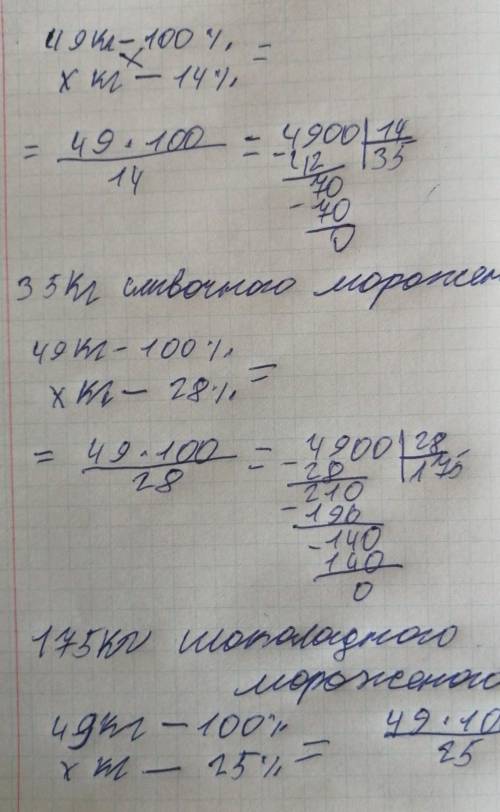 49кг - 100% =
x кг - 14%
= 49 · 100 / 14 = 4900 | 14
- 42 | 35
70
- 70
0
35кг сливочного морожен
49кг - 100% =
x кг - 28%
= 49 · 100 / 28 = - 4900 | 28
28 | 175
210
- 196
- 140
140
0
175кг шоколадного
мороженого
49кг - 100% = 49 · 10
x кг - 25% 25